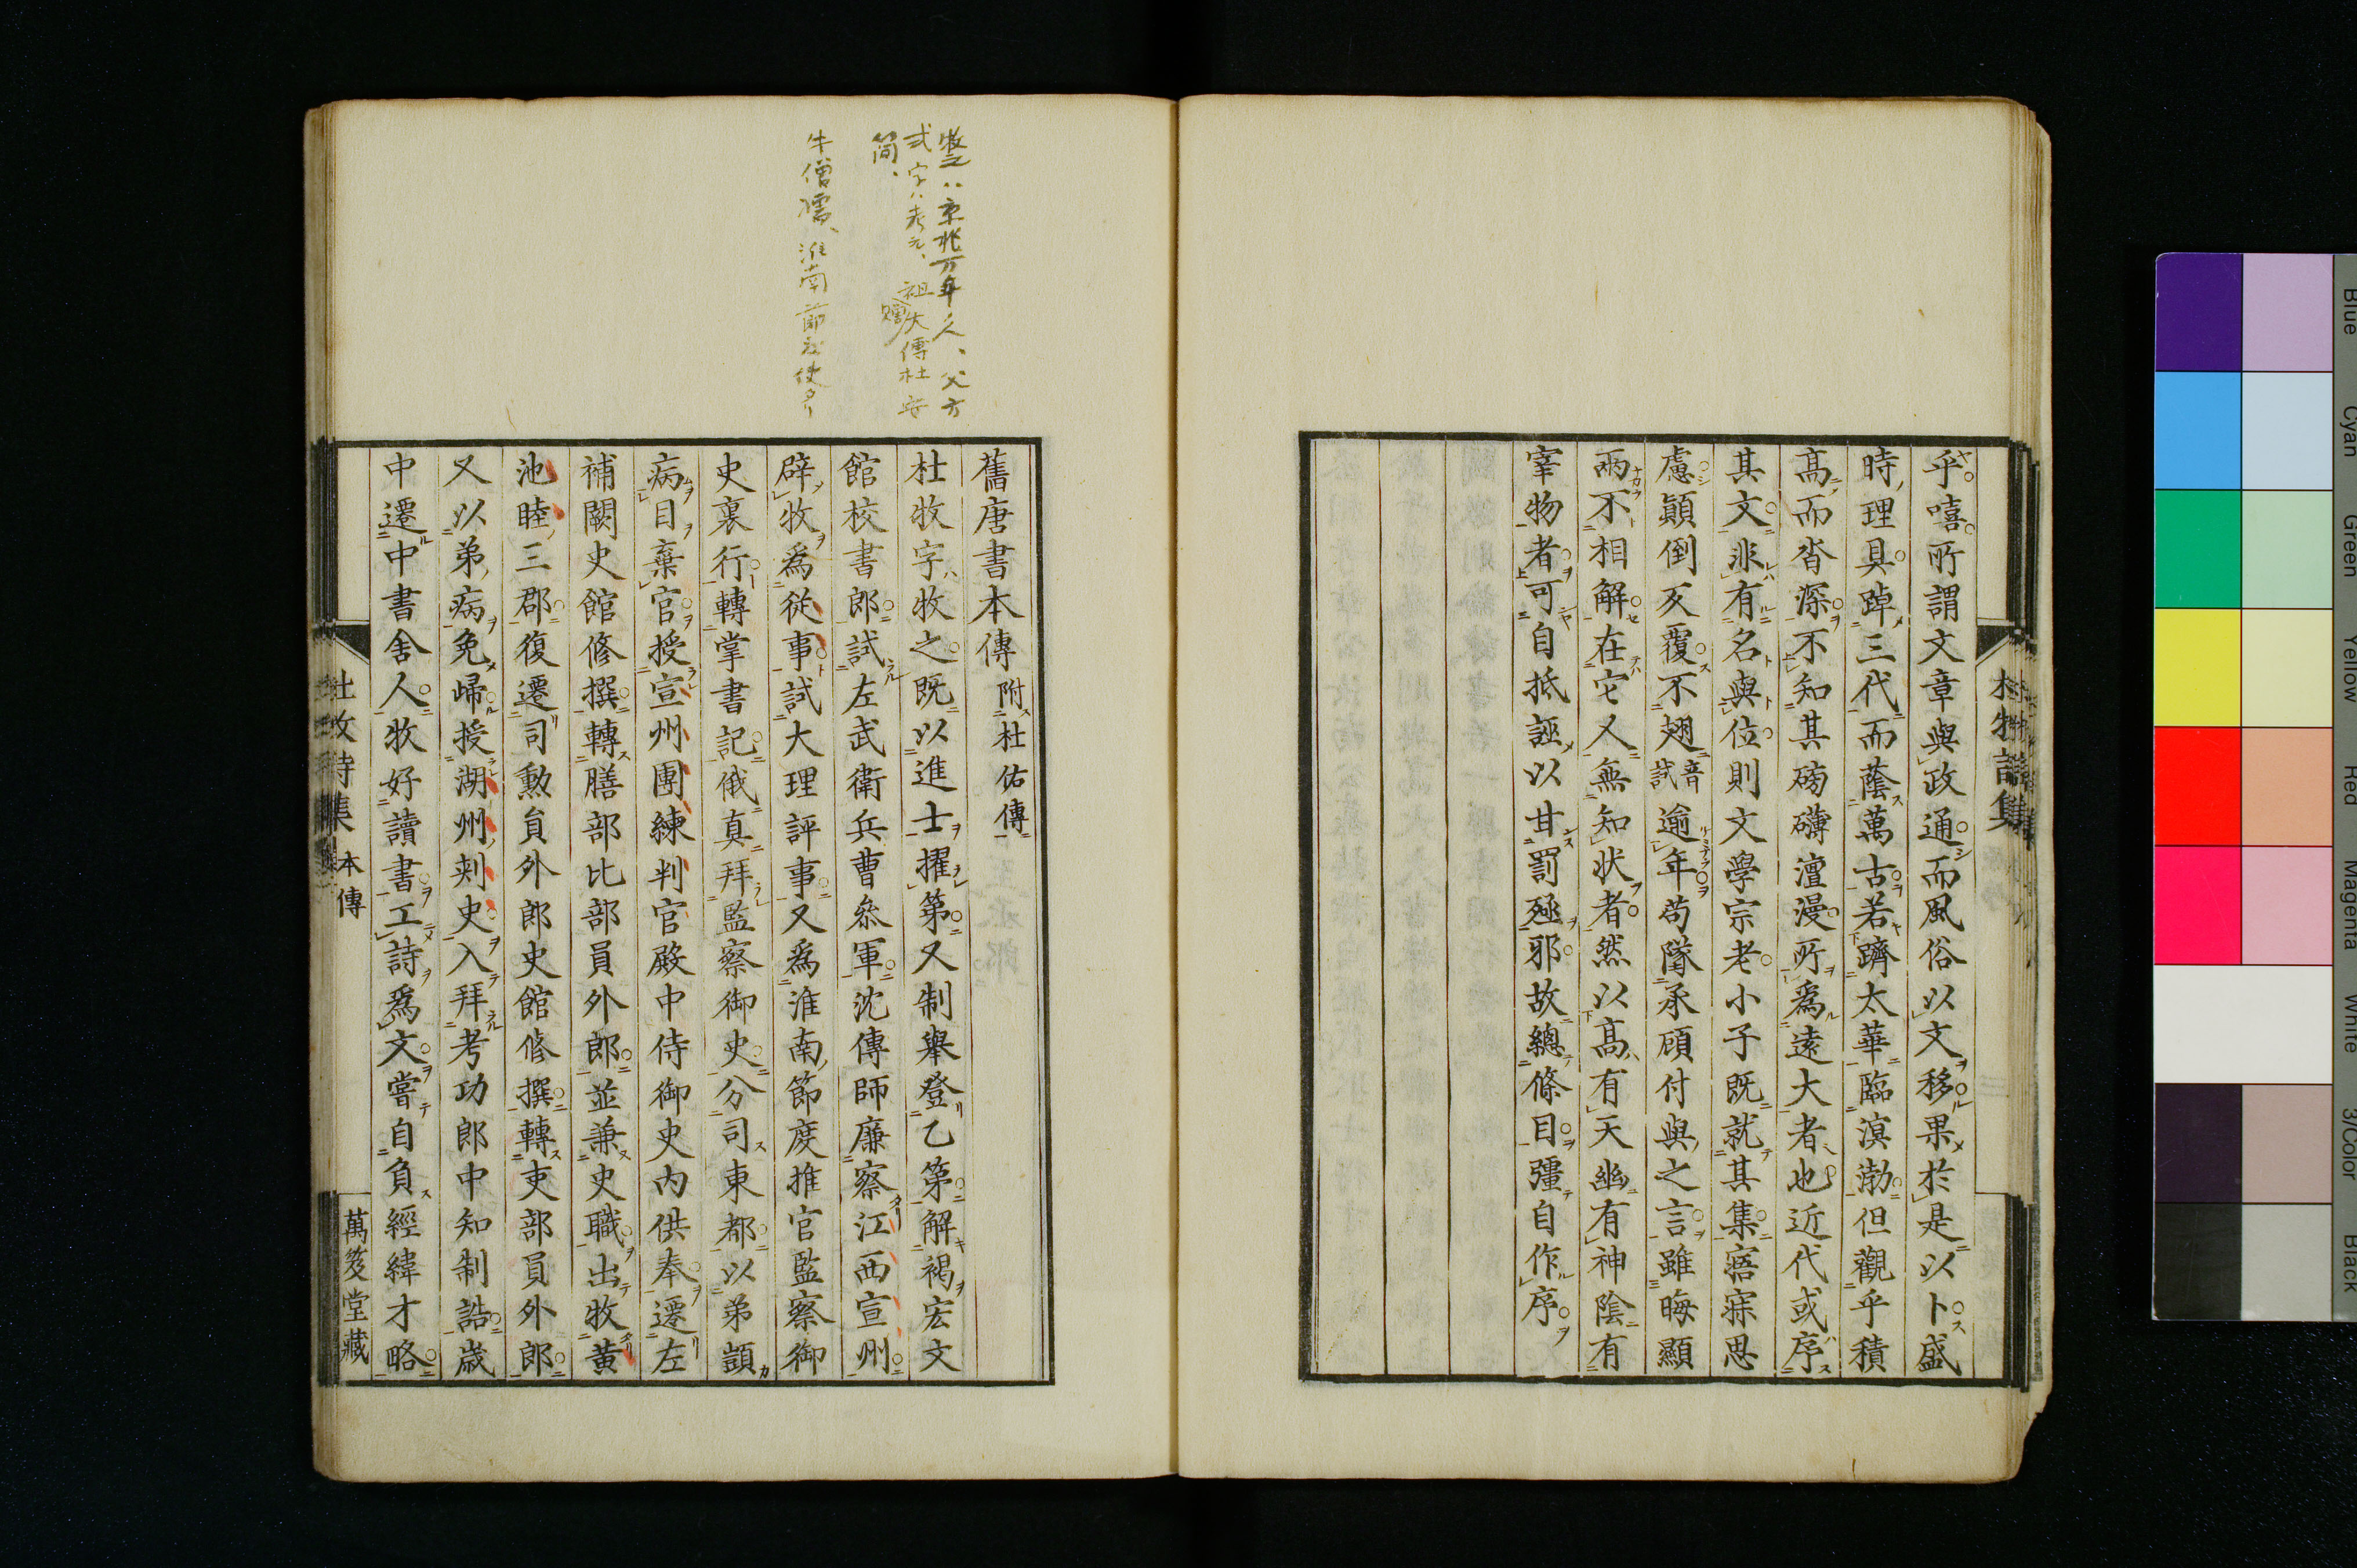 乎嘻所謂文章與政通而風俗以文移果於是以卜盛
時理具踔三代而蔭萬古若躋太華臨溟渤但觀乎積
高而沓深不知其磅礴澶漫所爲遠大者也近代或序
其文非有名與位則文學宗老小子既就其集寤寐思
慮顛倒反覆不翅音試逾年苟墜承顧付與之言雖晦顯
兩不相解在它人無知狀者然以高有天幽有神陰有
宰物者可自抵誣以甘罰殛邪故總條目彊自作序
杜牧詩集
舊唐書本傳附杜佑傳
杜牧字牧之既以進士擢第又制舉登乙第解褐宏文
館校書郎試左武衛兵曹參軍沈傳師廉察江西宣州
辟牧爲從事試大理評事又爲淮南節度推官監察御
史裏行轉掌書記俄真拜監察御史分司東都以弟顗
病目棄官授宣州團練判官殿中侍御史內供奉遷左
補闕史館修撰轉膳部比部員外郎並兼史職出牧黃
池睦三郡復遷司勲員外郎史館修撰轉吏部員外郎
又以弟病免歸授湖州刺史入拜考功郎中知制誥歲
中遷中書舍人牧好讀書工詩爲文嘗自負經緯才略
杜牧詩集 本傳
萬笈堂藏
牧之ハ京兆万年ノ人、父方
式字ハ考元、祖贈大傅杜安
簡、
牛僧孺、淮南節度使タリ